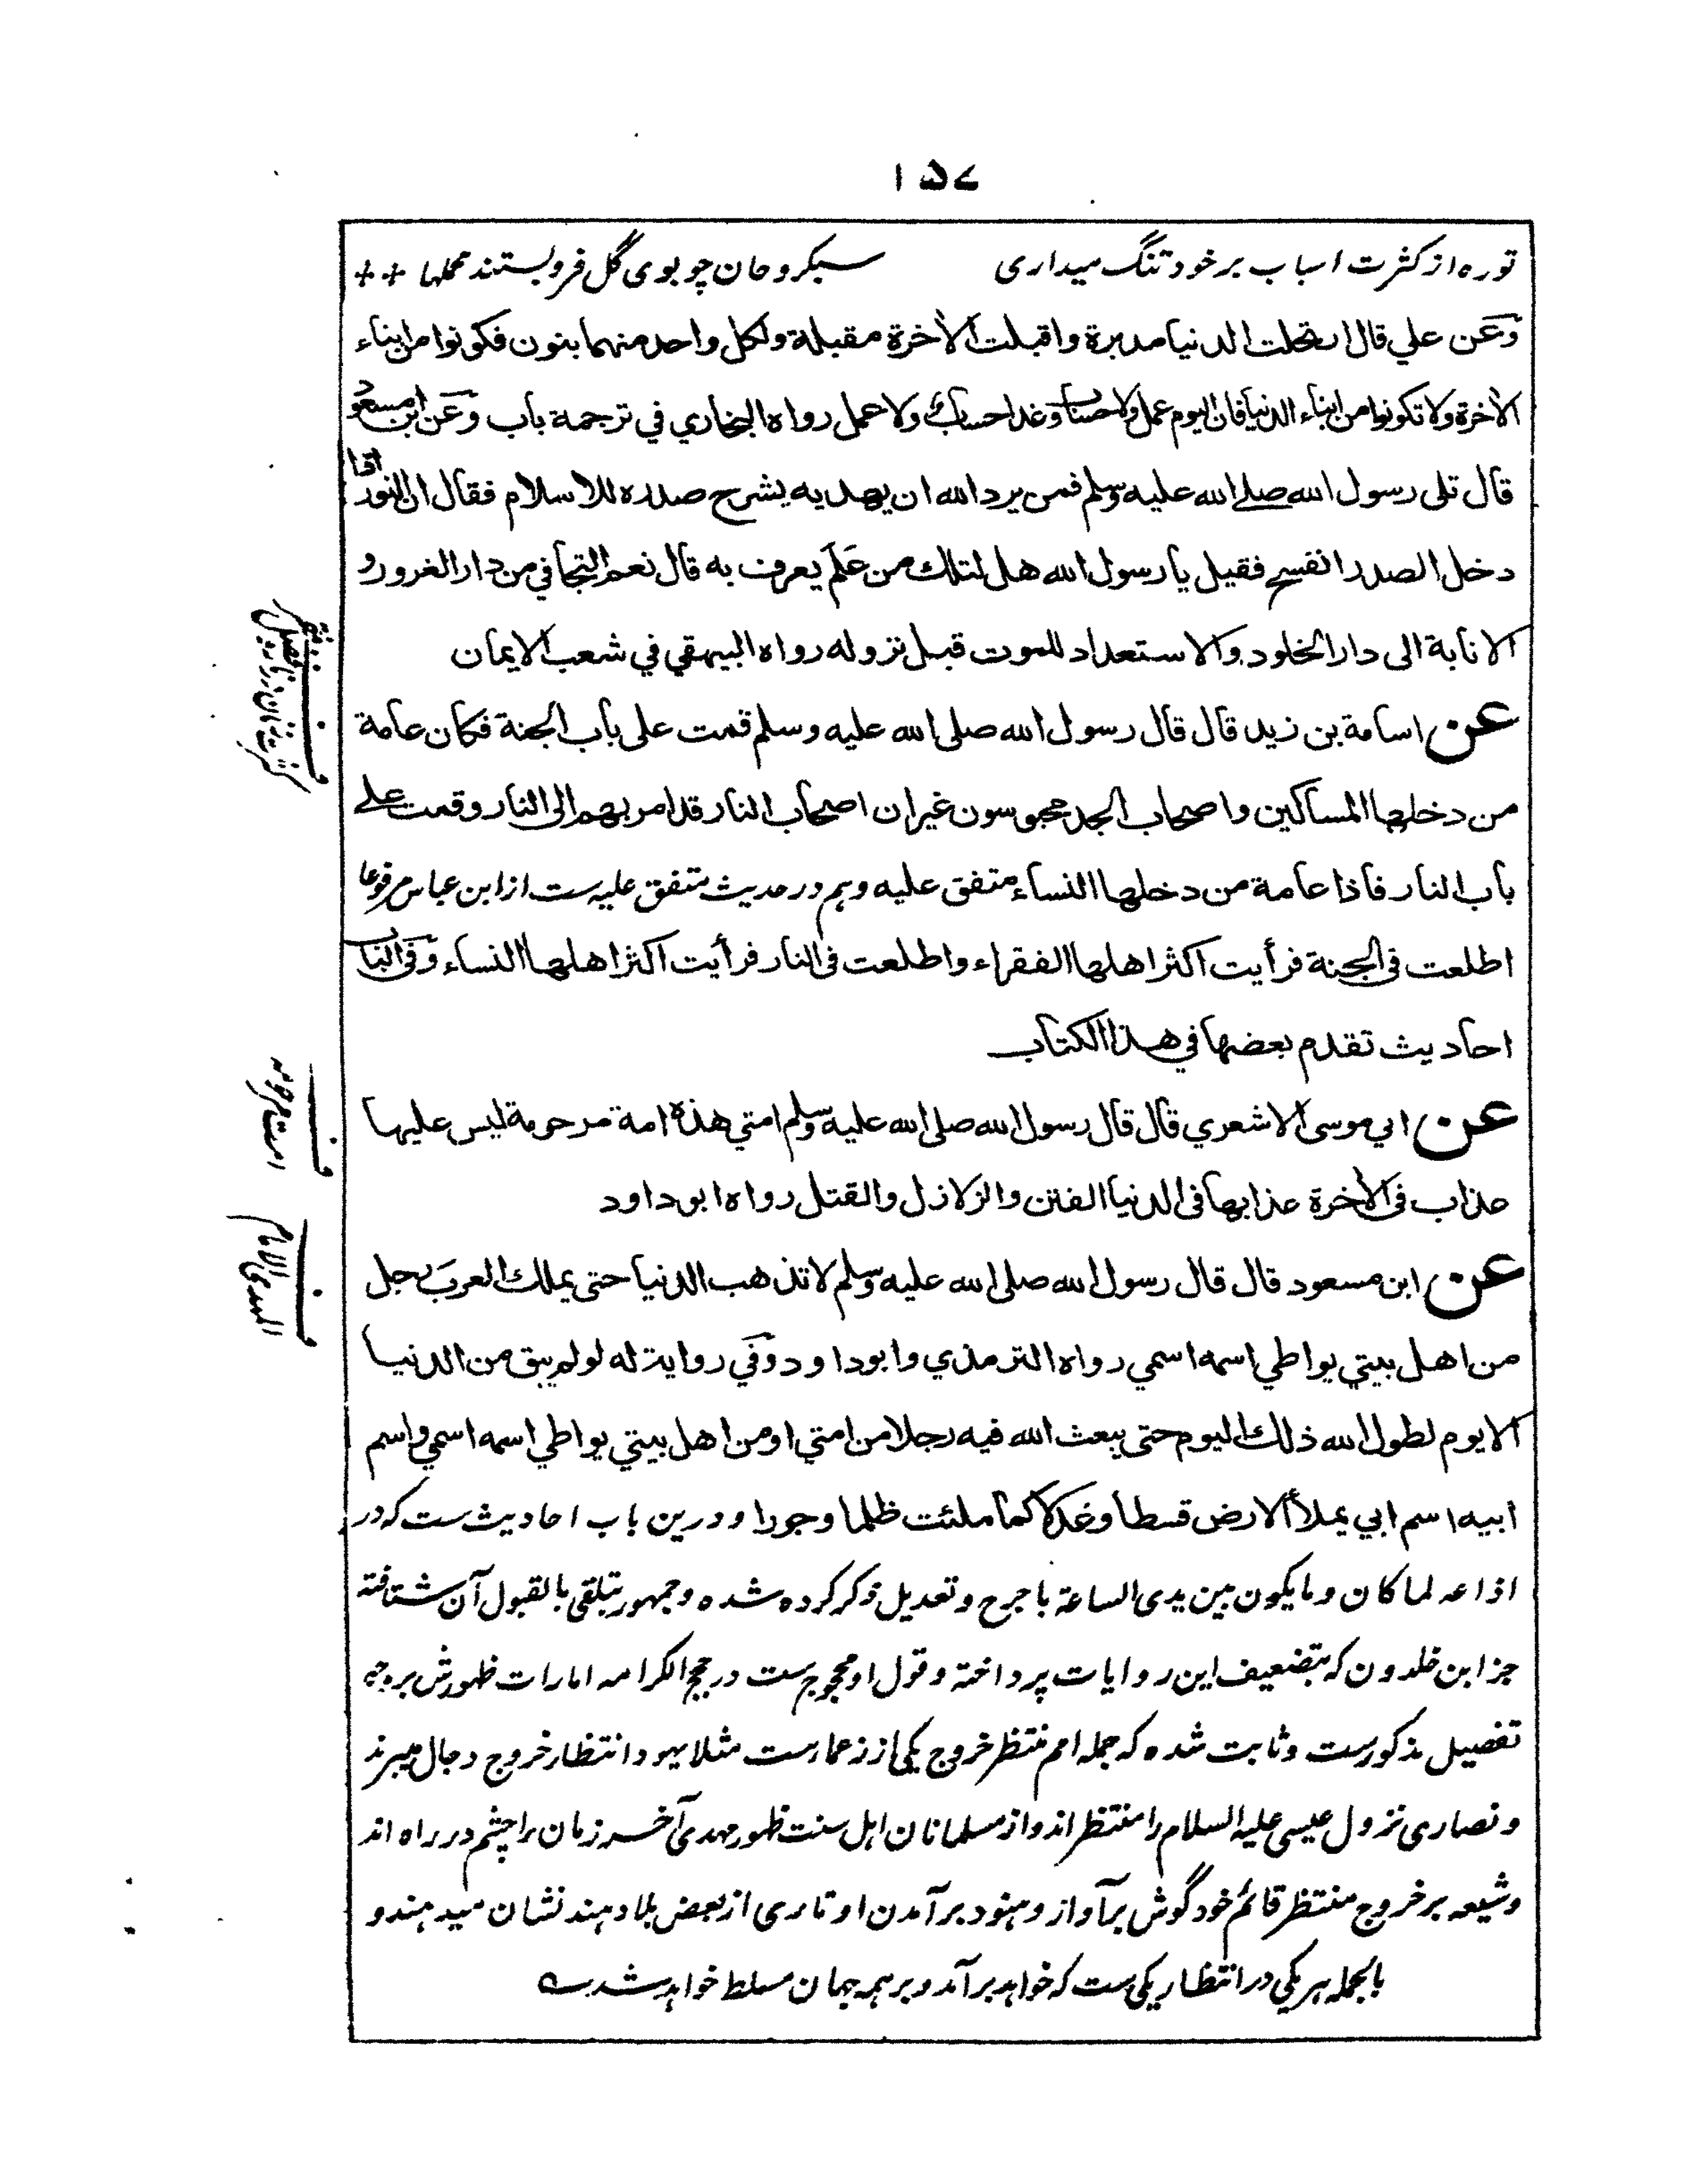 ١٥٧
توره از کثرت اسباب بر خود تنگ میداری سبکروحان چو بوی گل فروبستند محملها ++
وعن علي قال ارتحلت الدنيا مدبرة واقبلت الآخرة مقبلة ولكل واحد منهما بنون فكونوا من ابناء
الآخرة ولا تكونوا من ابناء الدنيا فان اليوم عمل ولا حساب وغدا حساب ولا عمل رواه البخاري في ترجمة باب وعن ابن مسعود
قال تلى رسول الله صلى الله عليه وسلم فمن يرد الله ان يهديه يشرح صدره للاسلام فقال ان النور اذا
دخل الصدر انفسح فقيل يا رسول الله هل لتلك من علم يعرف به قال نعم التجافي من دار الغرور و
الانابة الى دار الخلود والاستعداد للموت قبل نزوله رواه البيهقي في شعب الايمان
عن اسامة بن زيد قال قال رسول الله صلى الله عليه وسلم قمت على باب الجنة فكان عامة
من دخلها المساكين واصحاب الجد محبوسون غير ان اصحاب النار قد امر بهم الى النار وقمت على
باب النار فاذا عامة من دخلها النساء متفق عليه وهم در حدیث متفق علیه ست از ابن عباس مرفوعا
اطلعت في الجنة فرأيت اكثر اهلها الفقراء واطلعت في النار فرأيت اكثر اهلها النساء وفي الباب
احاديث تقدم بعضها في هذا الكتاب
عن ابي موسى الاشعري قال قال رسول الله صلى الله عليه وسلم امتي هذه امة مرحومة ليس عليها
عذاب في الآخرة عذابها في الدنيا الفتن والزلازل والقتل رواه ابو داود
عن ابن مسعود قال قال رسول الله صلى الله عليه وسلم لا تذهب الدنيا حتى يملك العرب رجل
من اهل بيتي يواطي اسمه اسمي رواه الترمذي وابو داود وفي رواية له لو لم يبق من الدنيا
الا يوم لطول الله ذلك اليوم حتى يبعث الله فيه رجلا من امتي او من اهل بيتي يواطي اسمه اسمي واسم
ابيه اسم ابي يملأ الارض قسطا وعدلا كما ملئت ظلما وجورا ودرین باب احادیث ست که در
اذاعه لما كان وما يكون بين يدي الساعة با جرح و تعدیل ذکر کرده شده و جمهور بتلقی بالقبول آن شتافته
جز ابن خلدون که بتضعیف این روایات پرداخته و قول او محجوج ست در حجج الکرامه امارات ظهورش بر وجه
تفصیل مذکورست و ثابت شده که جمله امم منتظر خروج یکی از زعمارست مثلا یهود انتظار خروج دجال میبرند
و نصاری نزول عیسی علیه السلام را منتظر اند و از مسلمانان اهل سنت ظهور مهدی آخر زمان را چشم در راه اند
و شیعه بر خروج منتظر قائم خود گوش بر آواز و هنود بر آمدن اوتاری از بعض بلاد هند نشان میدهند و
بالجمله هر یکی در انتظار یکی ست که خواهد برآمد و بر همه جهان مسلط خواهد شد ـه
ف
امت مرحومه
ف
المهدی الامام